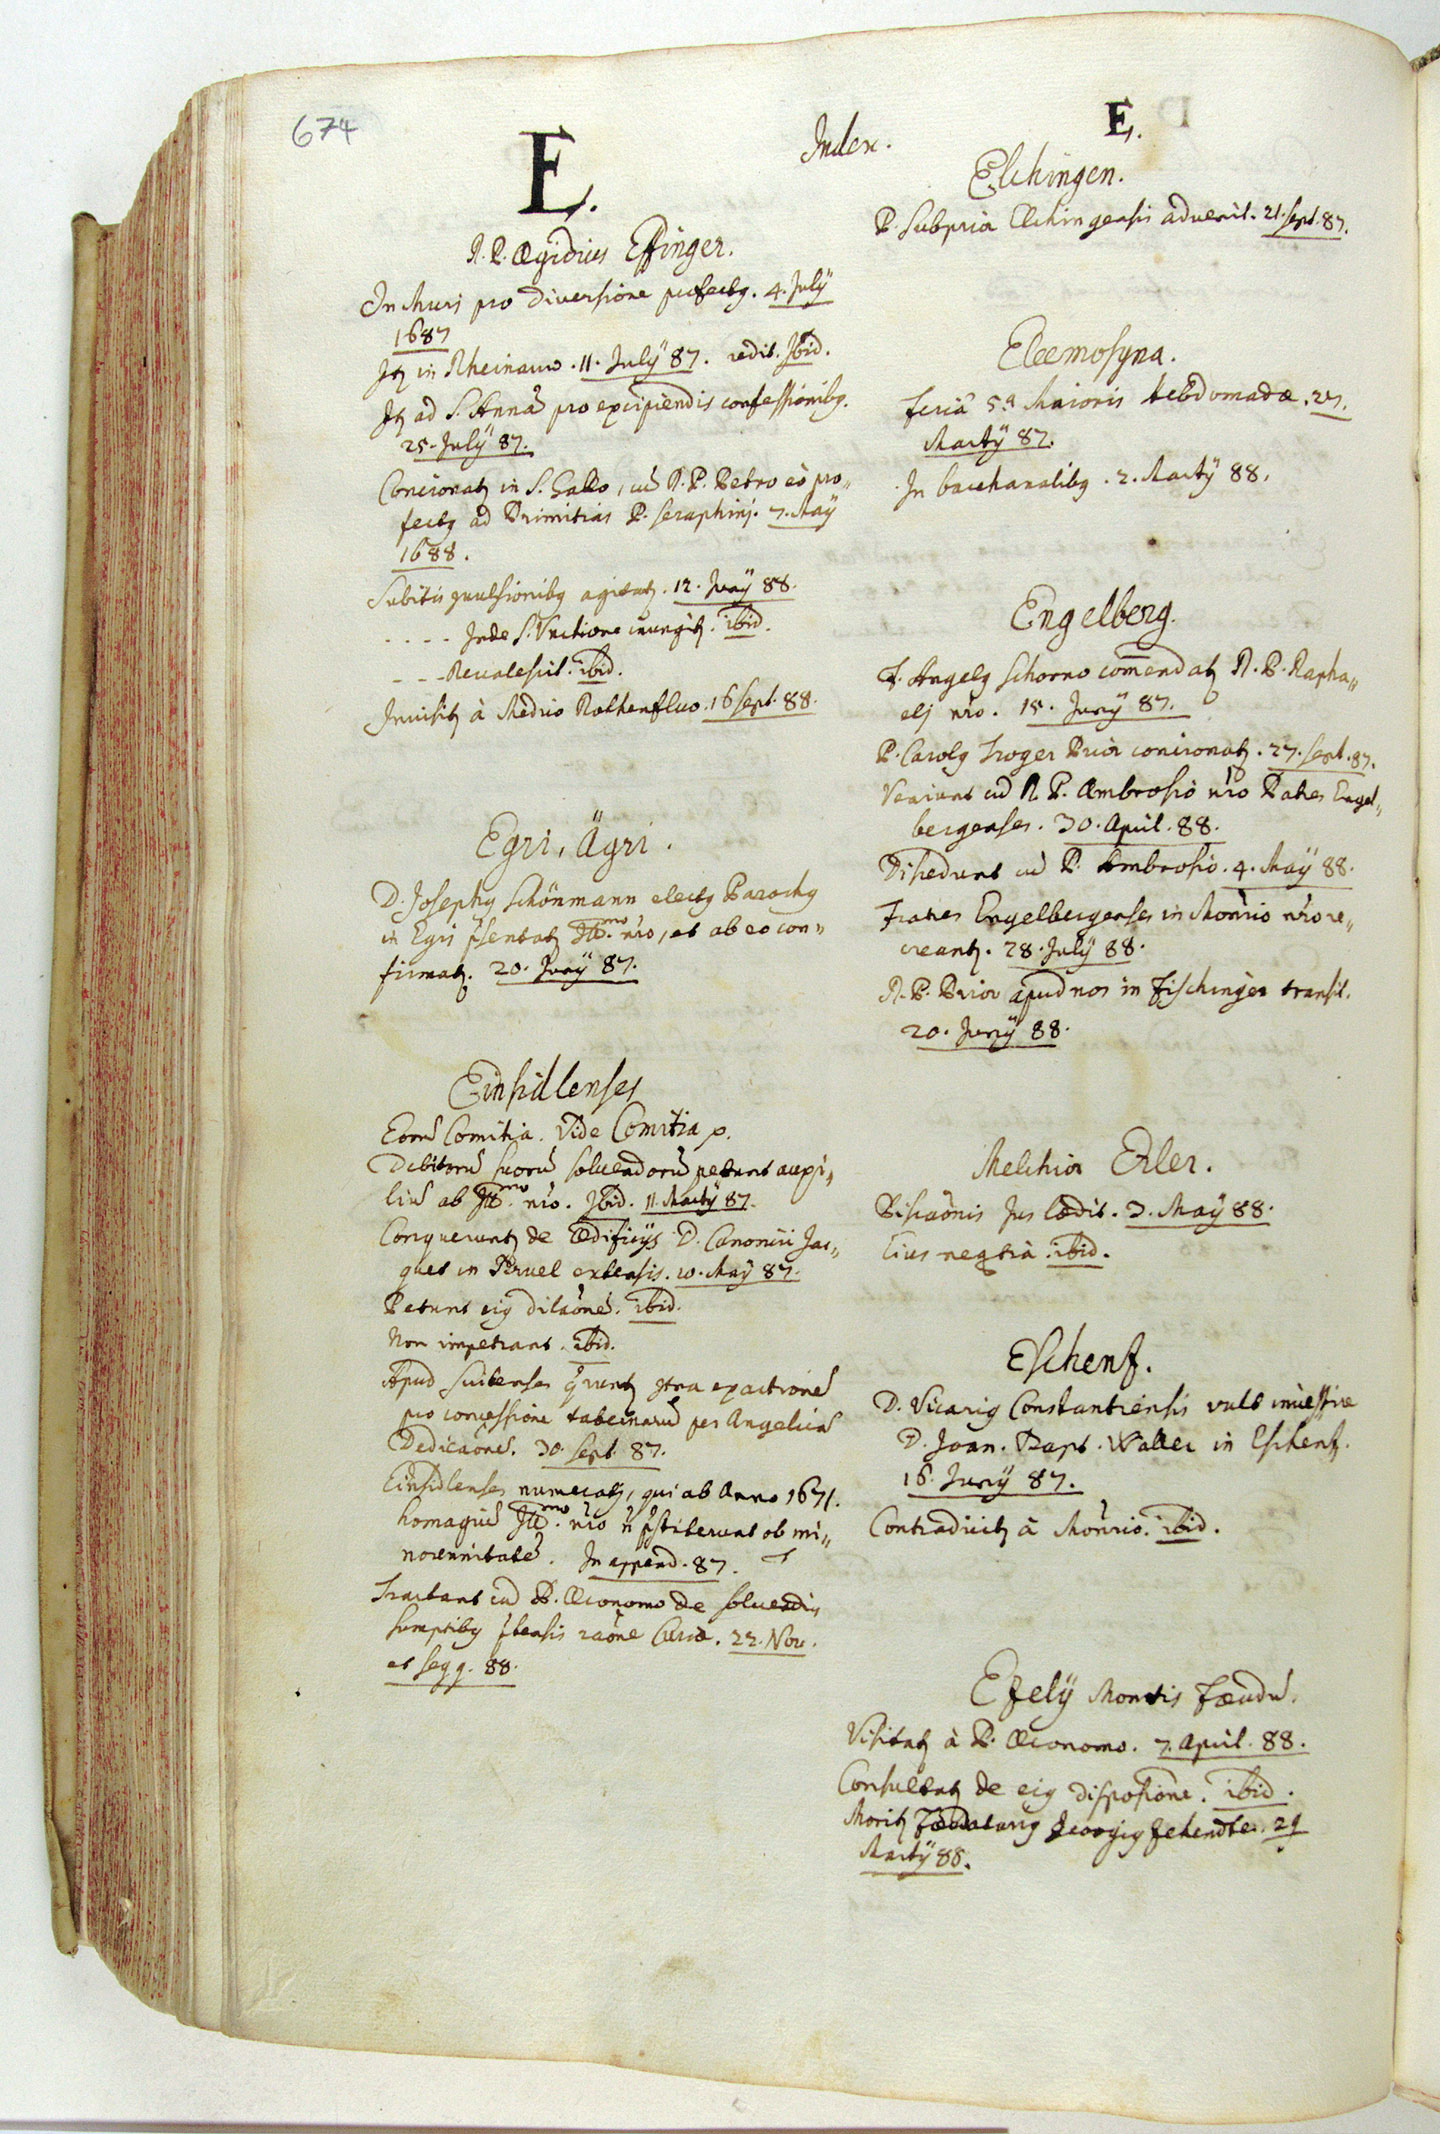 674
Index.
E.
R. P. Ægidius Effinger.
In Muri pro diversione profectꝰ. 4. July
1687
Itẽ in Rheinauw. 11. July 87. redit. Ibid.
Itẽ ad S. Annã pro excipiendis confessionibꝰ.
25. July 87.
Concionatʳ in S. Gallo, cũ R. P. Petro eò pro„
fectꝰ ad Primitias P. Seraphinj. 7. May
1688.
Subitis 9vulsionibꝰ agitatʳ. 12. Juny 88.
- - - - Inde S. Unctione inungitʳ. ibid.
- - - Revalescit. ibid.
Invisitʳ à Medico Rothenfluo. 16 Sept. 88.
Egri, Ägri.
D. Josephꝰ Schönmann electꝰ Parochꝰ
in Egri p̃sentatʳ Illᵐᵒ. nr̃o, et ab eo con„
firmatʳ. 20. Juny 87.
Einsidlenses
Eorũ Comitia. Vide Comitia p.
Debitorũ suorũ solvendorũ petunt auxi„
liũ ab Illᵐᵒ nr̃o. Ibid. 11. Marty 87.
Conqueruntʳ de Ædificÿs D. Canonici Jac„
quet in Pruel extensis. 10. May 87.
Petunt eiꝰ dilaõnẽ. ibid.
Non impetrant. ibid.
Apud Suitenses q̃runtʳ 9tra exactionẽ
pro concessione tabernarũ per Angelicã
Dedicaõnẽ. 30. Sept. 87.
Einsidlenses numeratʳ, qui ab Anno 1671.
homagiũ Illᵐᵒ. nr̃o ñ p̃stiterunt ob mi„
norennitatẽ. In append. 87.
Tractant cũ P. Œconomo de solvendis
sumptibꝰ raõne Curiæ. 22. Nov.
et seqq. 88.
E.
Elchingen.
P. Subprior Elchingensis advenit. 21. Sept. 87.
Eleemosyna.
Feriâ 5.ᵃ Maioris hebdomadæ. 27.
Marty 87.
In bacchanalibꝰ. 2. Marty 88.
Engelberg.
F. Angelꝰ Schorno com̃endatʳ R. P. Rapha„
elj nr̃o. 15. Juny 87.
P. Carolꝰ Troger Prior concionatʳ. 27. Sept. 87.
Veniunt cũ R. P. Ambrosio nr̃o Patres Engel„
bergenses. 30. April. 88.
Discedunt cũ P. Ambrosio. 4. May 88.
Fratres Engelbergenses in Monr̃io nr̃o re„
creantʳ. 28. July 88.
R. P. Prior apud nos in Fischingen transit.
20. Juny 88.
Melchior Erler.
Piscaõnis Jus lædit. 3. May 88.
Eius neq̃tia ibid.
Eschenz.
D. Vicariꝰ Constantiensis vult investire
D. Joan. Bapt. Waller in Eschenz.
16. Juny 87.
Contradicitʳ à Monr̃io. ibid.
Ezelÿ Montis Fæudũ.
Visitatʳ à P. Œconomo. 7. April. 88.
Consultatʳ de eiꝰ disposiõne. ibid.
Moritʳ Fæudatariꝰ Georgiꝰ Zehender. 29
Marty 88.